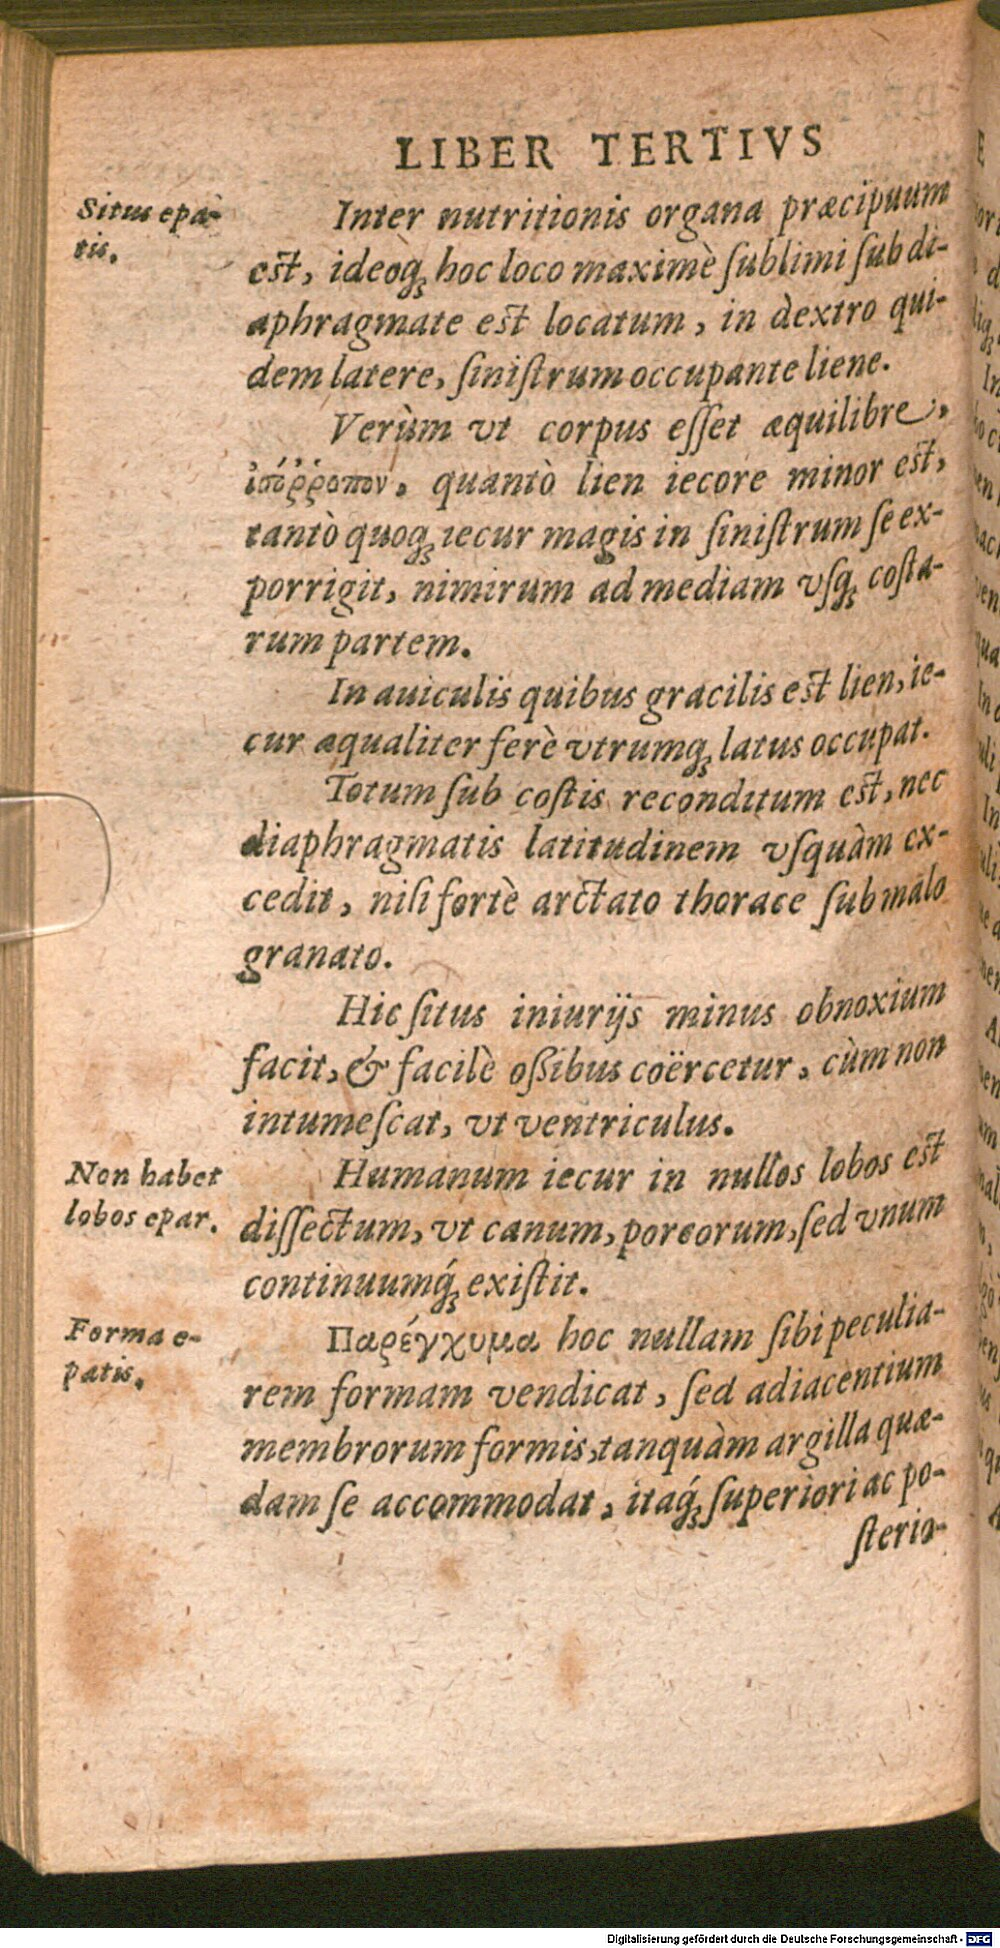 LIBER TERTIVS
Situs epa-
tis.
Inter nutritionis organa præcipuum
est, ideoq́ꝫ hoc loco maximè ſublimi ſub di-
aphragmate est locatum, in dextro qui-
dem latere, ſiniſtrum occupante liene.
Verùm vt corpus eſſet æquilibre,
ἰσόῤῥοπον, quantò lien iecore minor est,
tantò quoqꝫ iecur magis in ſiniſtrum ſe ex-
porrigit, nimirum ad mediam vſqꝫ coſta-
rum partem.
In auiculis quibus gracilis est lien, ie-
cur æqualiter ferè vtrumqꝫ latus occupat.
Totum ſub coſtis reconditum est, nec
diaphragmatis latitudinem vſquàm ex-
cedit, niſi fortè arctato thorace ſub malo
granato.
Hic ſitus iniurijs minus obnoxium
facit, & facilè oſſibus coërcetur, cùm non
intumeſcat, vt ventriculus.
Non habet
lobos epar.
Humanum iecur in nullos lobos est
diſſectum, vt canum, porcorum, ſed vnum
continuumq́ꝫ exiſtit.
Forma e-
patis.
Παρέγχυμα hoc nullam ſibi peculia-
rem formam vendicat, ſed adiacentium
membrorum formis, tanquàm argilla quæ-
dam ſe accommodat, itaq́ꝫ ſuperiori ac po-
ſterio-
Digitalisierung gefördert durch die Deutsche Forschungsgemeinschaft - DFG